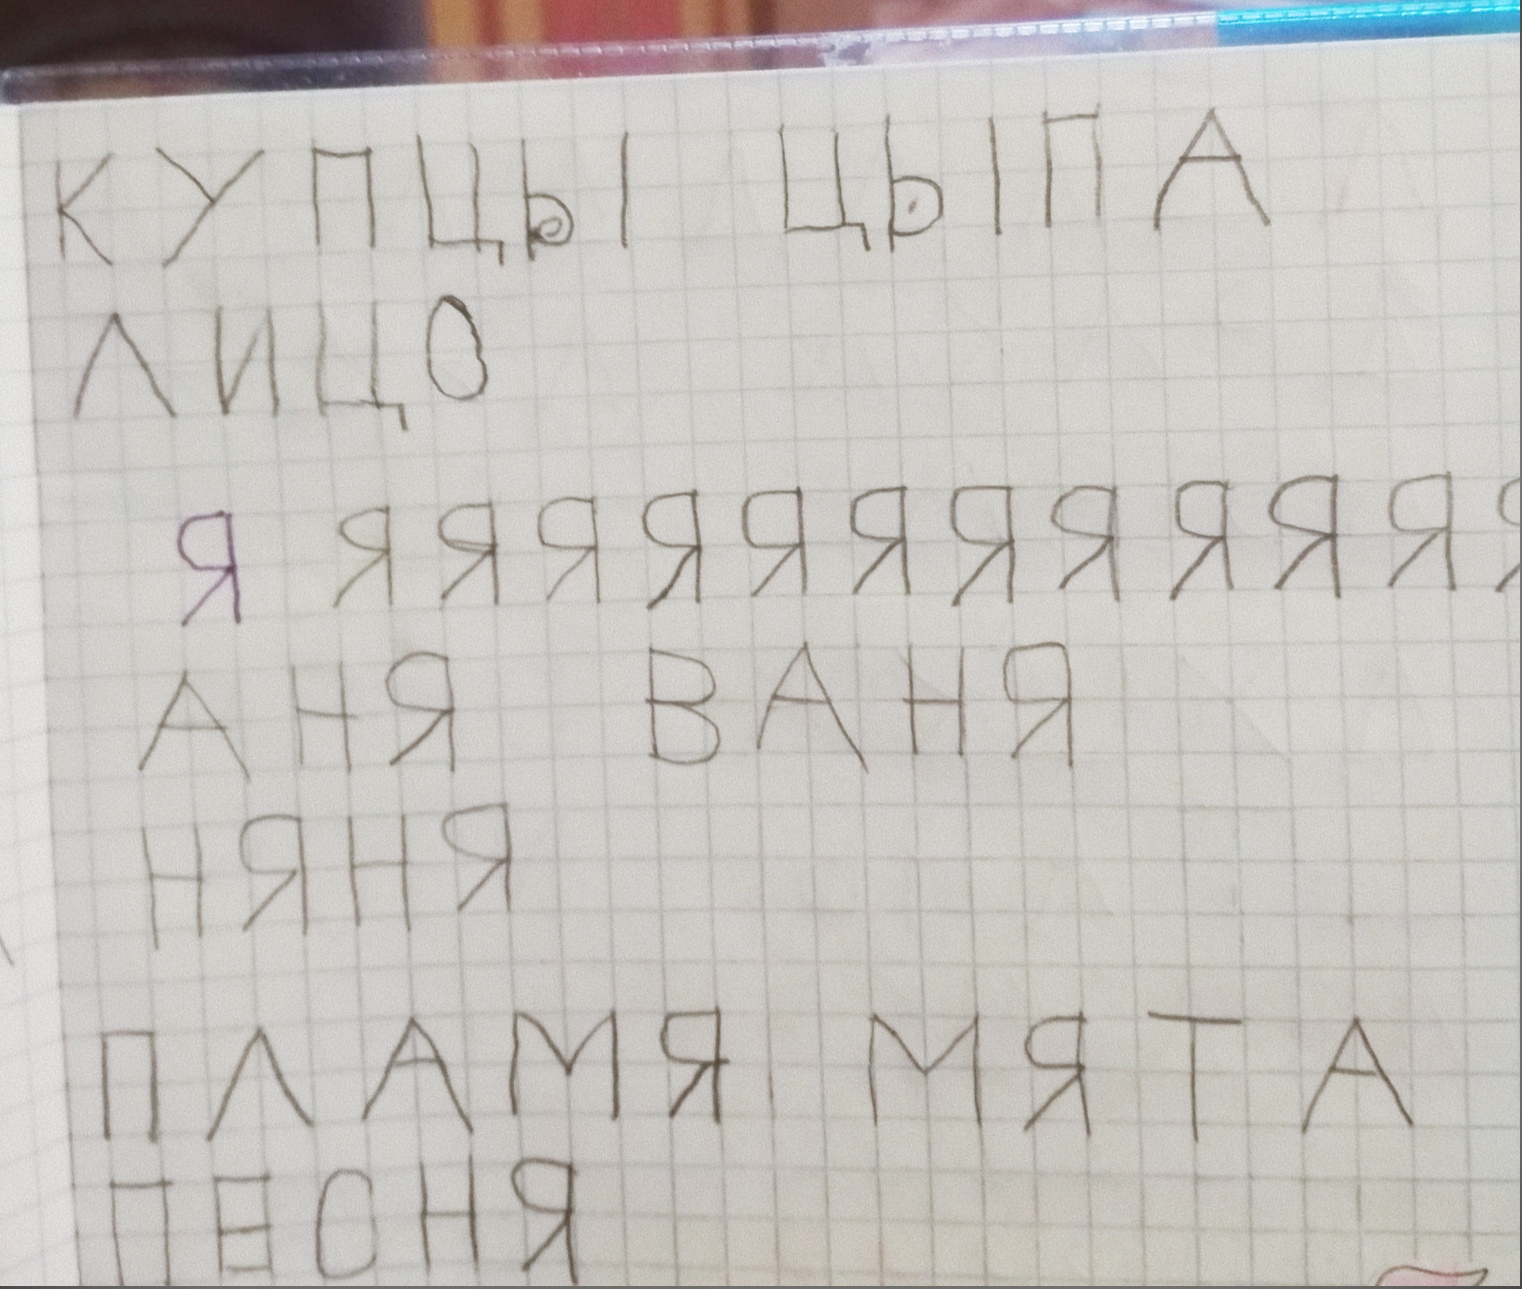 КУПЦЫ ЦЫПА
ЛИЦО
Я Я Я Я Я Я Я Я Я Я Я Я Я
АНЯ ВАНЯ
НЯНЯ
ПЛАМЯ МЯТА
ПЕСНЯ